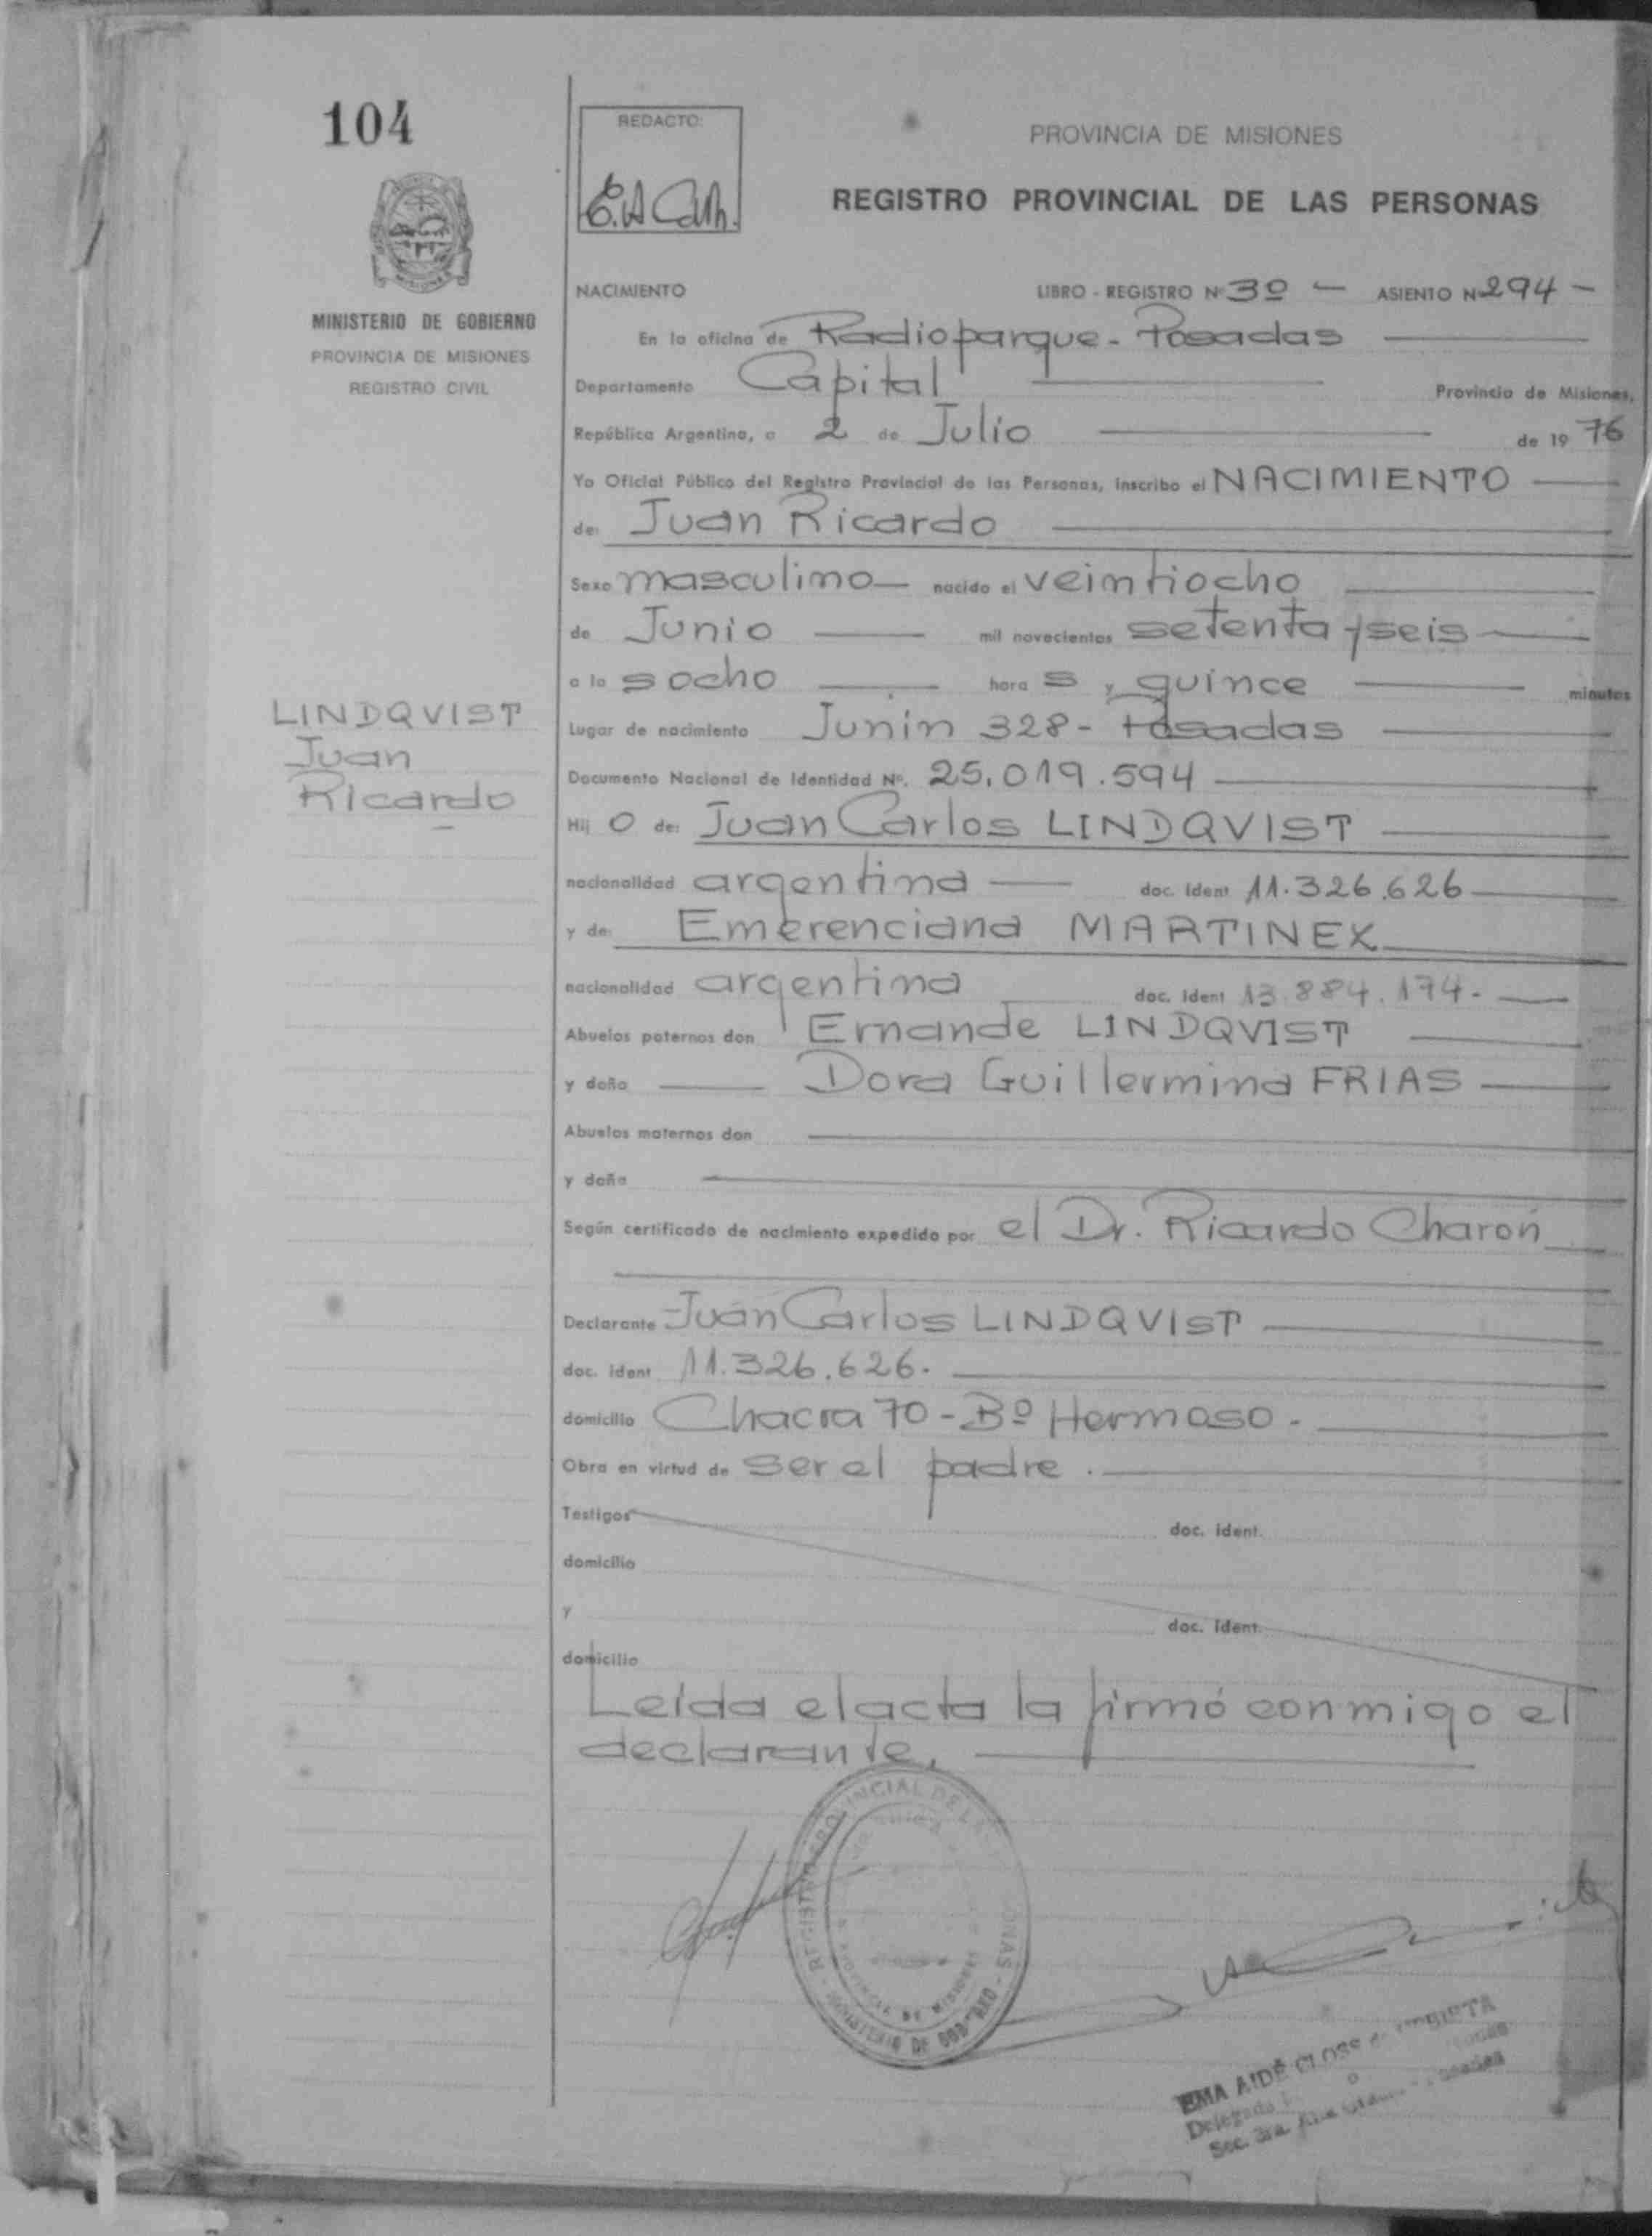 104
MINISTERIO DE GOBIERNO
PROVINCIA DE MISIONES
REGISTRO CIVIL
LINDQVIST
Juan
Ricardo
REDACTO:
PROVINCIA DE MISIONES
REGISTRO PROVINCIAL DE LAS PERSONAS
NACIMIENTO LIBRO - REGISTRO Nº 3º - ASIENTO Nº 294 -
En la oficina de Radioparque - Posadas
Departamento Capital Provincia de Misiones,
República Argentina, a 2 de Julio de 19 76
Yo Oficial Público del Registro Provincial de las Personas, inscribo el NACIMIENTO
de: Juan Ricardo
Sexo masculino nacido el veintiocho
de Junio mil novecientos setenta y seis
a la s ocho hora s y quince minutos
Lugar de nacimiento Junin 328 - Posadas
Documento Nacional de Identidad Nº. 25.019.594
Hij o de: Juan Carlos LINDQVIST
nacionalidad argentina doc. ident 11.326.626
y de: Emerenciana MARTINEX
nacionalidad argentina doc. ident 13.884.174.-
Abuelos paternos don Ernande LINDQVIST
y doña Dora Guillermina FRIAS
Abuelos maternos don
y doña
Según certificado de nacimiento expedido por el Dr. Ricardo Charón
Declarante Juan Carlos LINDQVIST
doc. ident 11.326.626.
domicilio Chacra 70 - Bº Hermoso.
Obra en virtud de ser el padre.
Testigos doc. ident.
domicilio
y doc. ident.
domicilio
Leida el acta la firmó conmigo el
declarante.
REGISTRO PROVINCIAL DE LAS
MINISTERIO DE GOBIERNO
PROVINCIA DE MISIONES
EMA AIDÉ CLOSS de
Delegada
Sec. 3ra.